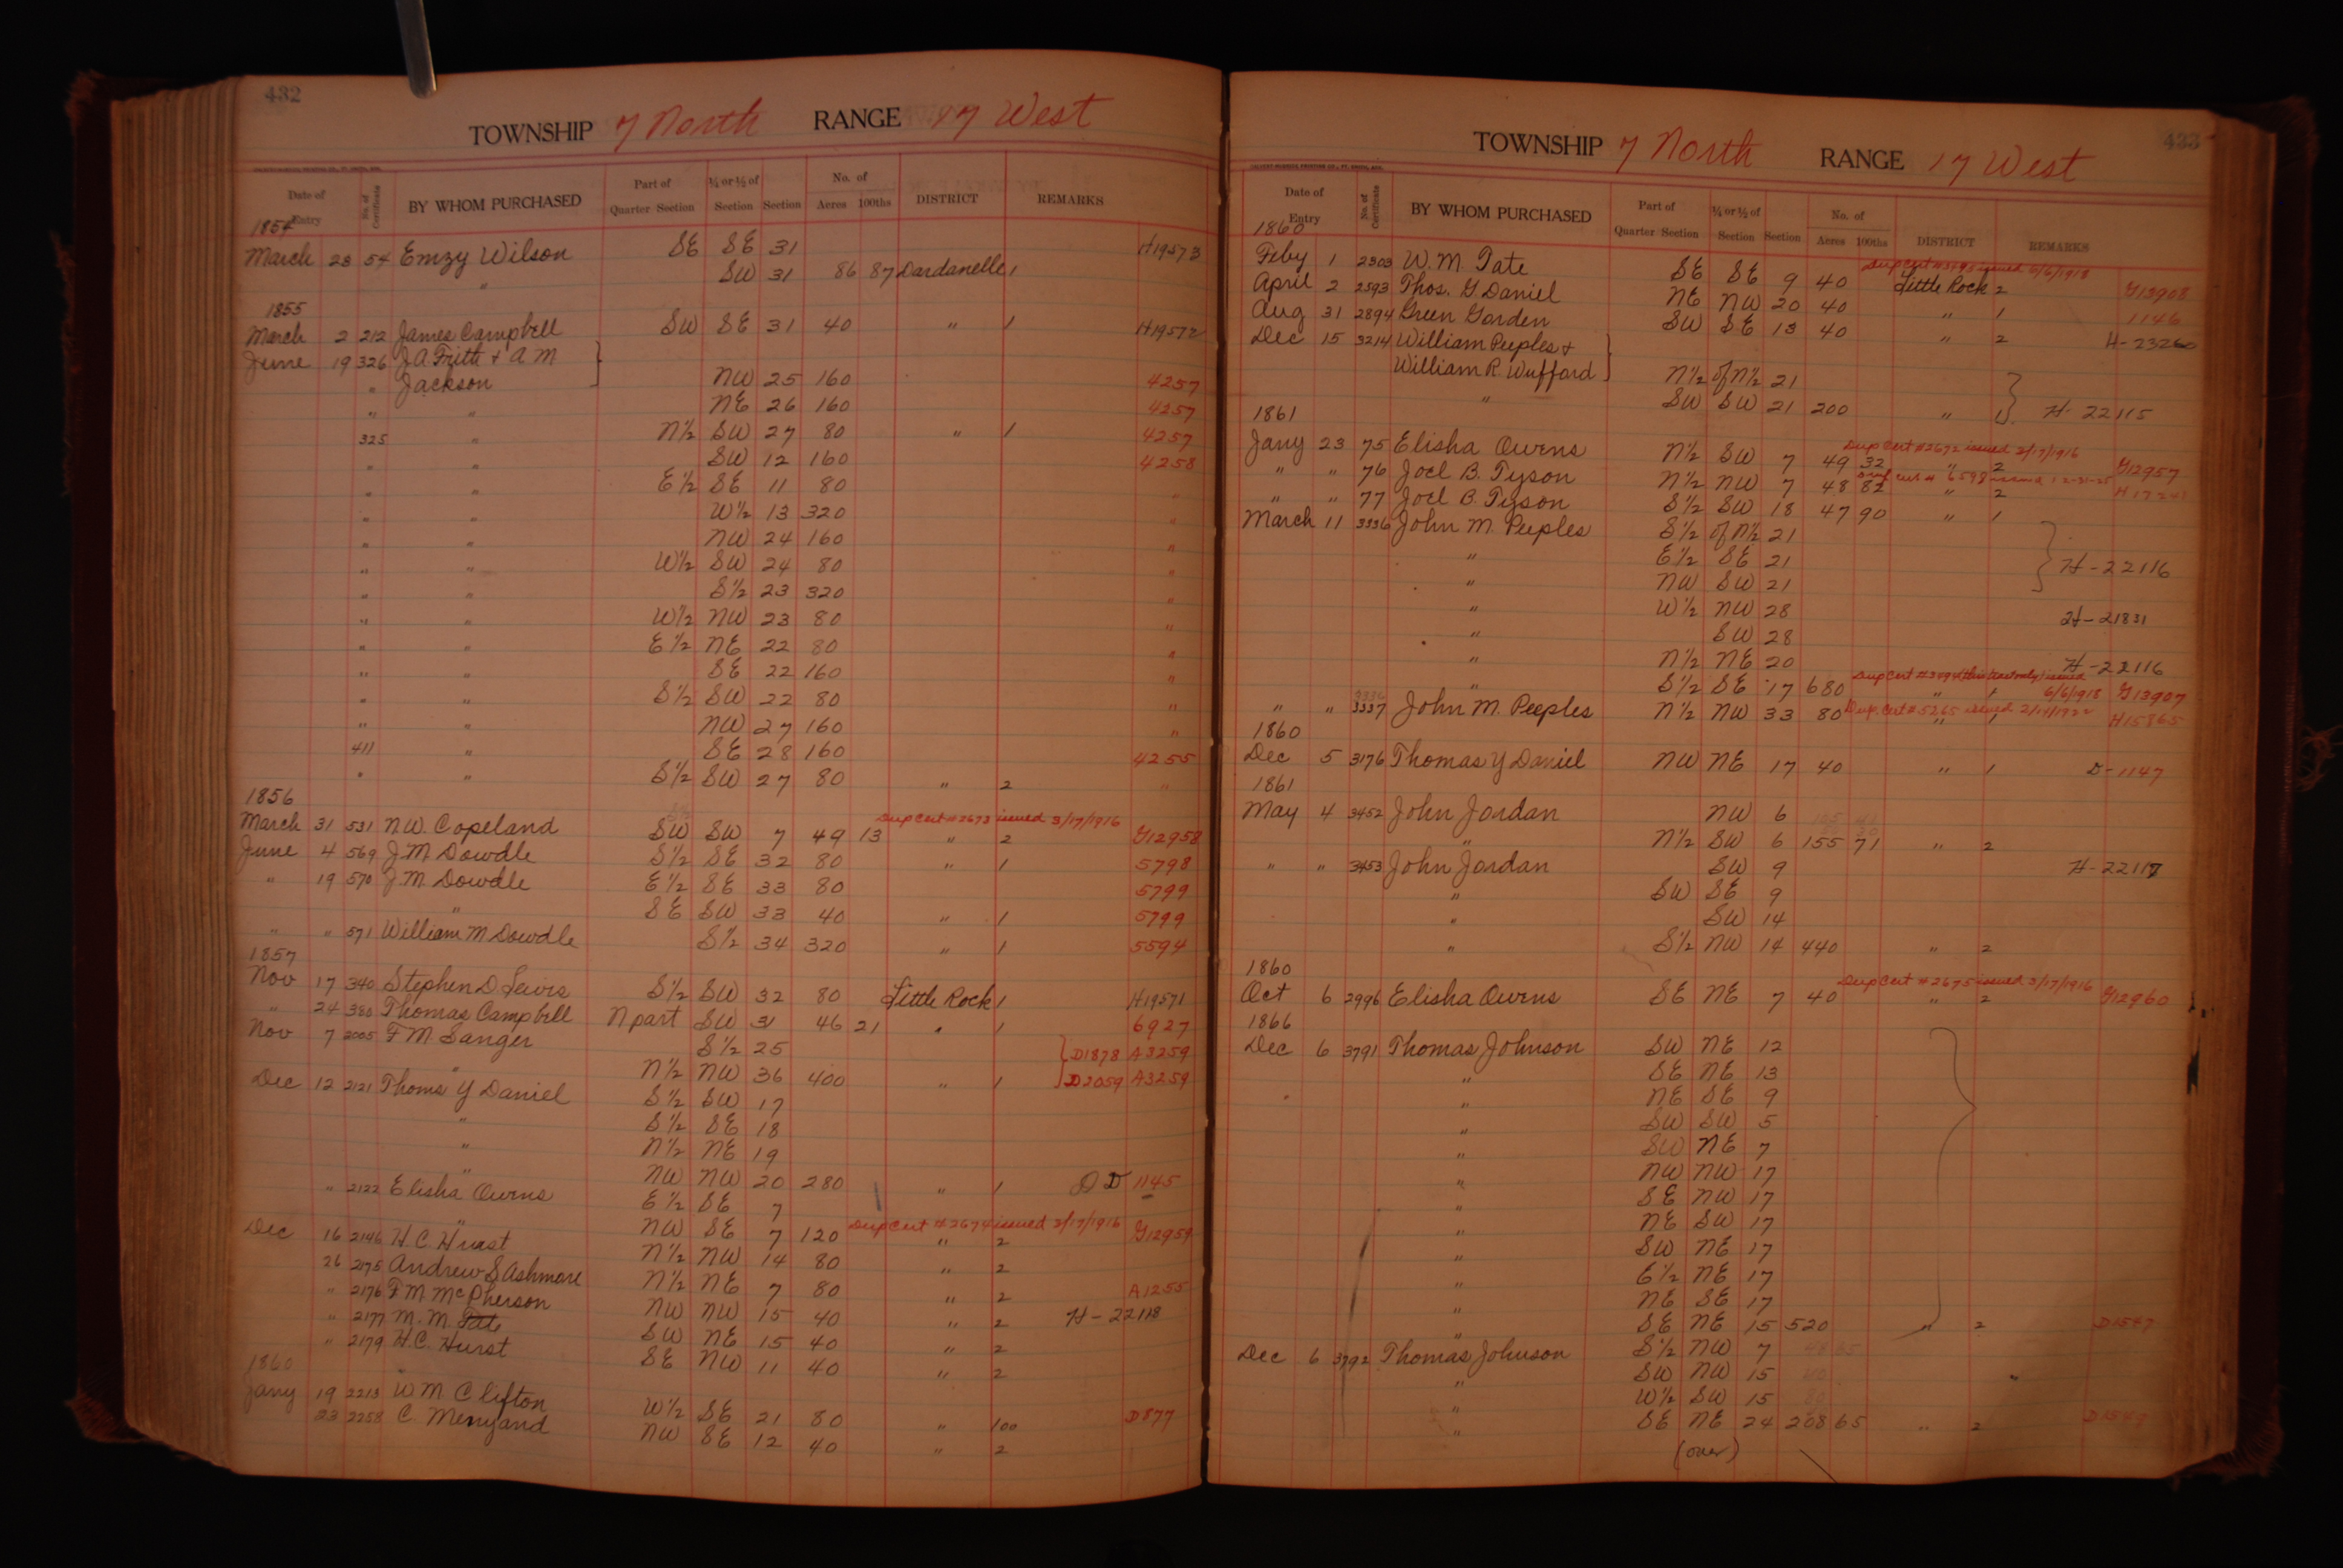 432
TOWNSHIP 7 North RANGE 17 West
Date of Entry No. of Certificate BY WHOM PURCHASED Part of Quarter Section ¼ or ½ of Section Section No. of Acres 100ths DISTRICT REMARKS
1854
March 23 54 Emzy Wilson SE SE 31 H19573
" SW 31 86 87 Dardanelle 1
1855
March 2 212 James Campbell SW SE 31 40 " 1 H19572
June 19 326 J A Frith + A M
" Jackson NW 25 160 4257
" " NE 26 160 4257
325 " N½ SW 27 80 " 1 4257
" " SW 12 160 4258
" " E½ SE 11 80 "
" " W½ 13 320 "
" " NW 24 160 "
" " W½ SW 24 80 "
" " S½ 23 320 "
" " W½ NW 23 80 "
" " E½ NE 22 80 "
" " SE 22 160 "
" " S½ SW 22 80 "
" " NW 27 160 "
411 " SE 28 160 4255
" " S½ SW 27 80 " 2 "
1856
Dup Cert #2673 issued 3/17/1916
March 31 531 N.W. Copeland SW SW 7 49 13 " 2 G12958
June 4 569 J.M. Dowdle S½ SE 32 80 " 1 5798
" 19 570 J.M. Dowdle E½ SE 33 80 5799
" SE SW 33 40 " 1 5799
" " 571 William M Dowdle S½ 34 320 " 1 5594
1857
Nov 17 340 Stephen D Lewis S½ SW 32 80 Little Rock 1 H19571
" 24 380 Thomas Campbell N part SW 31 46 21 " 1 6927
Nov 7 2005 F M Sanger S½ 25 D1878 A3259
" N½ NW 36 400 " 1 D2059 A3259
Dec 12 2121 Thoms Y Daniel S½ SW 17
" S½ SE 18
" N½ NE 19
" NW NW 20 280 " 1 D 1145
" 2122 Elisha Owens E½ SE 7
Dup Cert #2674 issued 3/17/1916
" NW SE 7 120 " 2 G12959
Dec 16 2146 H.C. Hurst N½ NW 14 80 " 2
26 2175 Andrew S Ashmore N½ NE 7 80 " 2 A1255
" 2176 F M McPherson NW NW 15 40 " 2 H-22118
" 2177 M. M. Tate SW NE 15 40 " 2
" 2179 H.C. Hurst SE NW 11 40 " 2
1860
Jany 19 2213 W M Clifton W½ SE 21 80 " 100 D877
23 2258 C. Menyand NW SE 12 40 " 2
433
TOWNSHIP 7 North RANGE 17 West
Date of Entry No. of Certificate BY WHOM PURCHASED Part of Quarter Section ¼ or ½ of Section Section No. of Acres 100ths DISTRICT REMARKS
1860
issued 6/6/1918
Feby 1 2303 W. M. Tate SE SE 9 40 Little Rock 2 G13908
April 2 2593 Thos. G Daniel NE NW 20 40 " 1 1146
Aug 31 2894 Green Gorden SW SE 13 40 " 2 H-23260
Dec 15 3214 William Peeples +
William R Wufford N½ of N½ 21
" SW SW 21 200 " 1 H-22115
1861
Dup Cert #2672 issued 3/17/1916
Jany 23 75 Elisha Owens N½ SW 7 49 32 " 2 G12957
Dup cert # 6598 issued 12-31-25
" " 76 Joel B. Tyson N½ NW 7 48 82 " 2
" " 77 Joel B. Tyson S½ SW 18 47 90 " 1
March 11 3336 John M. Peeples S½ of N½ 21
" E½ SE 21 H-22116
" NW SW 21
" W½ NW 28 H-21831
" SW 28
" N½ NE 20 H-22116
" S½ SE 17 680 " 1 6/6/1918 G13907
" " 3337 John M. Peeples N½ NW 33 80 Dup. Cert #5265 issued 2/14/1922 " 1 H15865
1860
Dec 5 3176 Thomas Y Daniel NW NE 17 40 " 1 D-1147
1861
May 4 3452 John Jordan NW 6
" N½ SW 6 155 71 " 2
" " 3453 John Jordan SW 9 H-22117
" SW SE 9
" SW 14
" S½ NW 14 440 " 2
1860
Dup Cert #2675 issued 3/17/1916
Oct 6 2996 Elisha Owens SE NE 7 40 " 2 G12960
1866
Dec 6 3791 Thomas Johnson SW NE 12
" SE NE 13
" NE SE 9
" SW SW 5
" SW NE 7
" NW NW 17
" SE NW 17
" NE SW 17
" SW NE 17
" E½ NE 17
" NE SE 17
" SE NE 15 520 " 2 D1547
Dec 6 3792 Thomas Johnson S½ NW 7
" SW NW 15
" W½ SW 15
" SE NE 24 208 65 " 2 D1549
(over)